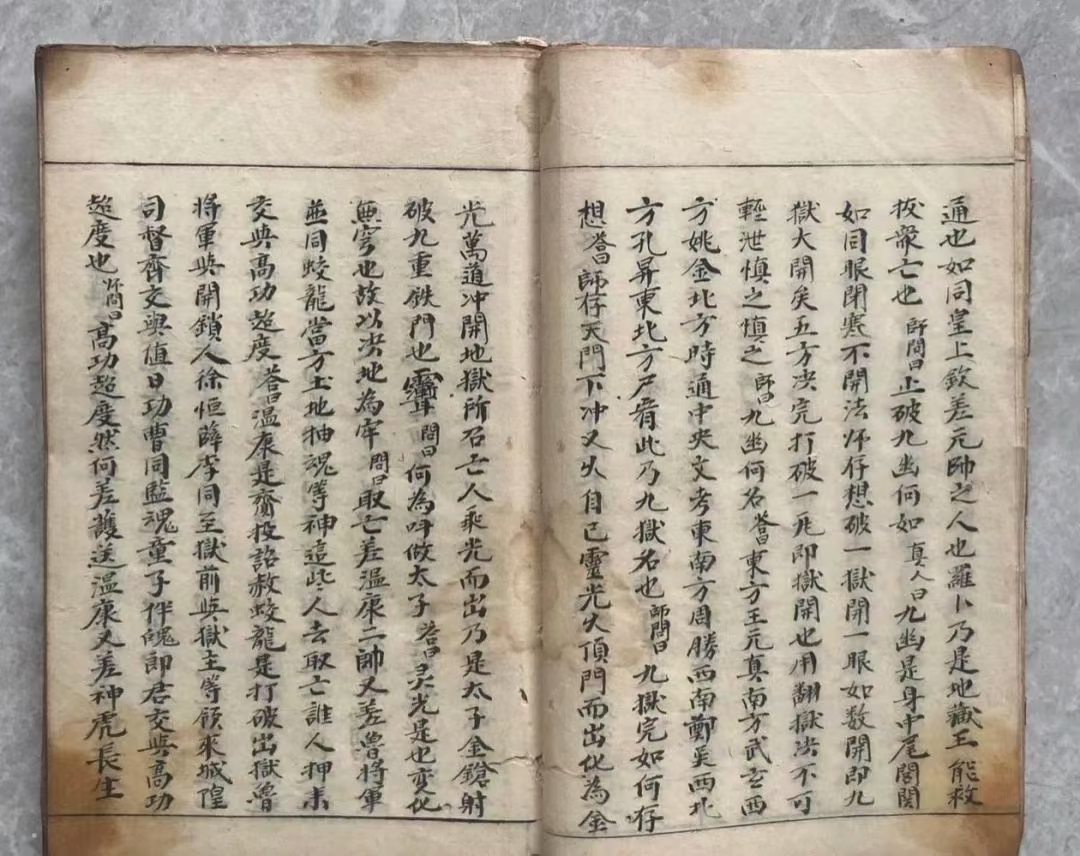 通也如同皇上欽差元帥之人也羅卜乃是地藏王能救
拔衆亡也師問曰上破九幽何如真人曰九幽是身中尾閭関
如同眼閉塞不開法师存想破一獄開一眼如数開即九
獄大開矣五方决完打破一死即獄開也用翻獄决不可
輕泄慎之慎之師曰九幽何名答曰東方王元真南方武玄西
方姚金北方時通中央文考東南方周勝西南鄭吴西北
方孔昇東北方尸脊此乃九獄名也師問曰九獄完如何存
想答曰師存天門下冲又火自己靈光火頂門而出化為金
光萬道冲開地獄所召亡人乘光而出乃是太子金鎗射
破九重鉄門也問曰何為呌做太子答曰灵光是也变化
無窮也故以决地為牢問曰取亡差温康二帥又差魯將軍
並同蛟龍當方土地抽魂等神這些人去取亡誰人押来
交與高功超度答曰温康是齎投詔赦蛟龍是打破出獄魯
將軍與開鎖人徐恒薛李同至獄前與獄主等領來城隍
司督齊交與值日功曹同監魂童子伴魄郎君交與高功
超度也师問曰高功超度然何差護送温康又差神虎長生